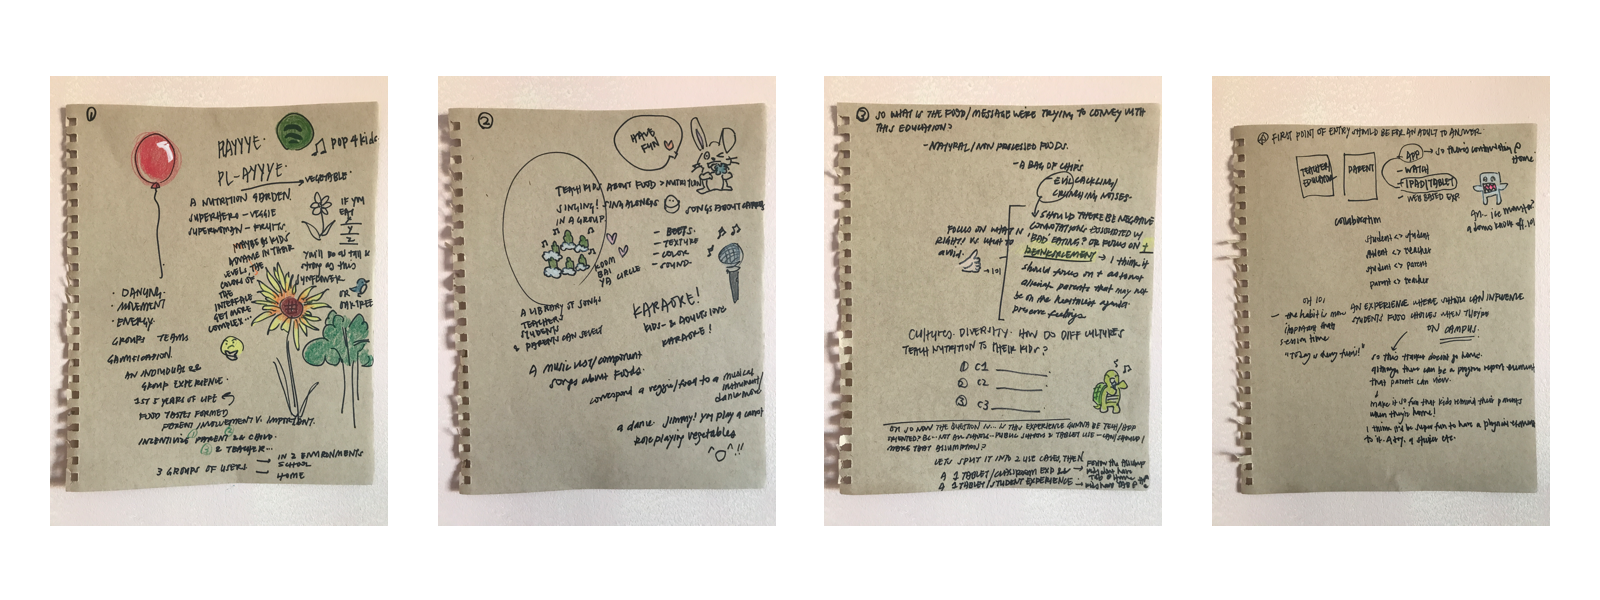 1
RAYYYE.
POP 4 kids.
PL-AYYYE.
VEGETABLE.
A NUTRITION GARDEN.
SUPERHERO - VEGGIE
SUPERWOMAN - FRUITS.
MAYBE AS KIDS
ADVANCE IN THEIR
LEVELS, THE
COLORS OF
THE
INTERFACE
GET MORE
COMPLEX...
IF YOU
EAT
X
Y
Z
YOU'll be as tall &
strong as this
SUNFLOWER
OR
OAK TREE
· DANCING.
· MOVEMENT
· ENERGY.
GROUPS TEAMS
GAMIFICATION.
AN INDIVIDUAL &
GROUP EXPERIENCE.
1ST 5 YEARS OF LIFE
FOOD TASTES FORMED
PARENT INVOLVEMENT V. IMPORTANT.
INCENTIVIZE PARENT & CHILD.
& TEACHER...
3 GROUPS OF USERS
IN 2 ENVIRONMENTS
SCHOOL
HOME
2
HAVE
FUN
TEACH KIDS ABOUT FOOD > NUTRITION
SINGING! SING ALONGS
SONGS ABOUT
IN A GROUP
- BEETS.
- TEXTURE
- COLOR
- SOUND.
KOOM
BAI
YA CIRCLE
A LIBRARY OF SONGS
TEACHERS
STUDENTS
& PARENTS CAN SELECT
KARAOKE!
KIDS & ADULTS LOVE
KARAOKE!
A music list/component
songs about foods.
correspond a veggie/food to a musical
instrument/
dance move
a dance. Jimmy! you play a carrot
role playing vegetables
3
SO WHAT IS THE FOOD/MESSAGE WE'RE TRYING TO CONVEY WITH
THIS EDUCATION?
- NATURAL/NON PROCESSED FOODS.
- A BAG OF CHIPS
EVIL CACKLING/
CRUNCHING NOISES.
SHOULD THERE BE NEGATIVE
CONNOTATIONS ASSOCIATED W/
'BAD EATING? OR FOCUS ON +
REINFORCEMENT → I think it
should focus on + as to not
alienate parents that may not
be on the healthiest
preserve feelings
FOCUS ON WHAT IS
RIGHT! VS WHAT TO
avoid.
→ lol
CULTURES DIVERSITY. HOW DO DIFF CULTURES
TEACH NUTRITION TO THEIR KIDS?
1 C1
2 C2
3 C3
OK SO NOW THE QUESTION IS... IS THIS EXPERIENCE GUNNA BE TECH/APP
MAKE THAT ASSUMPTION?
LETS SPLIT IT INTO 2 USE CASES, THEN
A 1 TABLET/CLASSROOM EXP &
A 1 TABLET/STUDENT EXPERIENCE
4 FIRST POINT OF ENTRY SHOULD BE FOR AN ADULT TO ANSWER.
TEACHER/
EDUCATOR
PARENT
- APP → so there's continuity @
home.
- WATCH
- IPAD/TABLET
- WEB BASED EXP.
collaboration
student <> student
student <> teacher
student <> parent
parent <> teacher
AN EXPERIENCE WHERE SCHOOLS CAN INFLUENCE
STUDENTS FOOD CHOICES WHEN THEY'RE
ON CAMPUS.
OH lol
- the habit is more
important than
screen time
so this tracker doesn't go home.
although there can be a progress report element
that parents can view.
&
make it so fun that kids remind their parents
when they're home!
I think it'd be super fun to have a physical element
to it. a toy, a sticker etc.